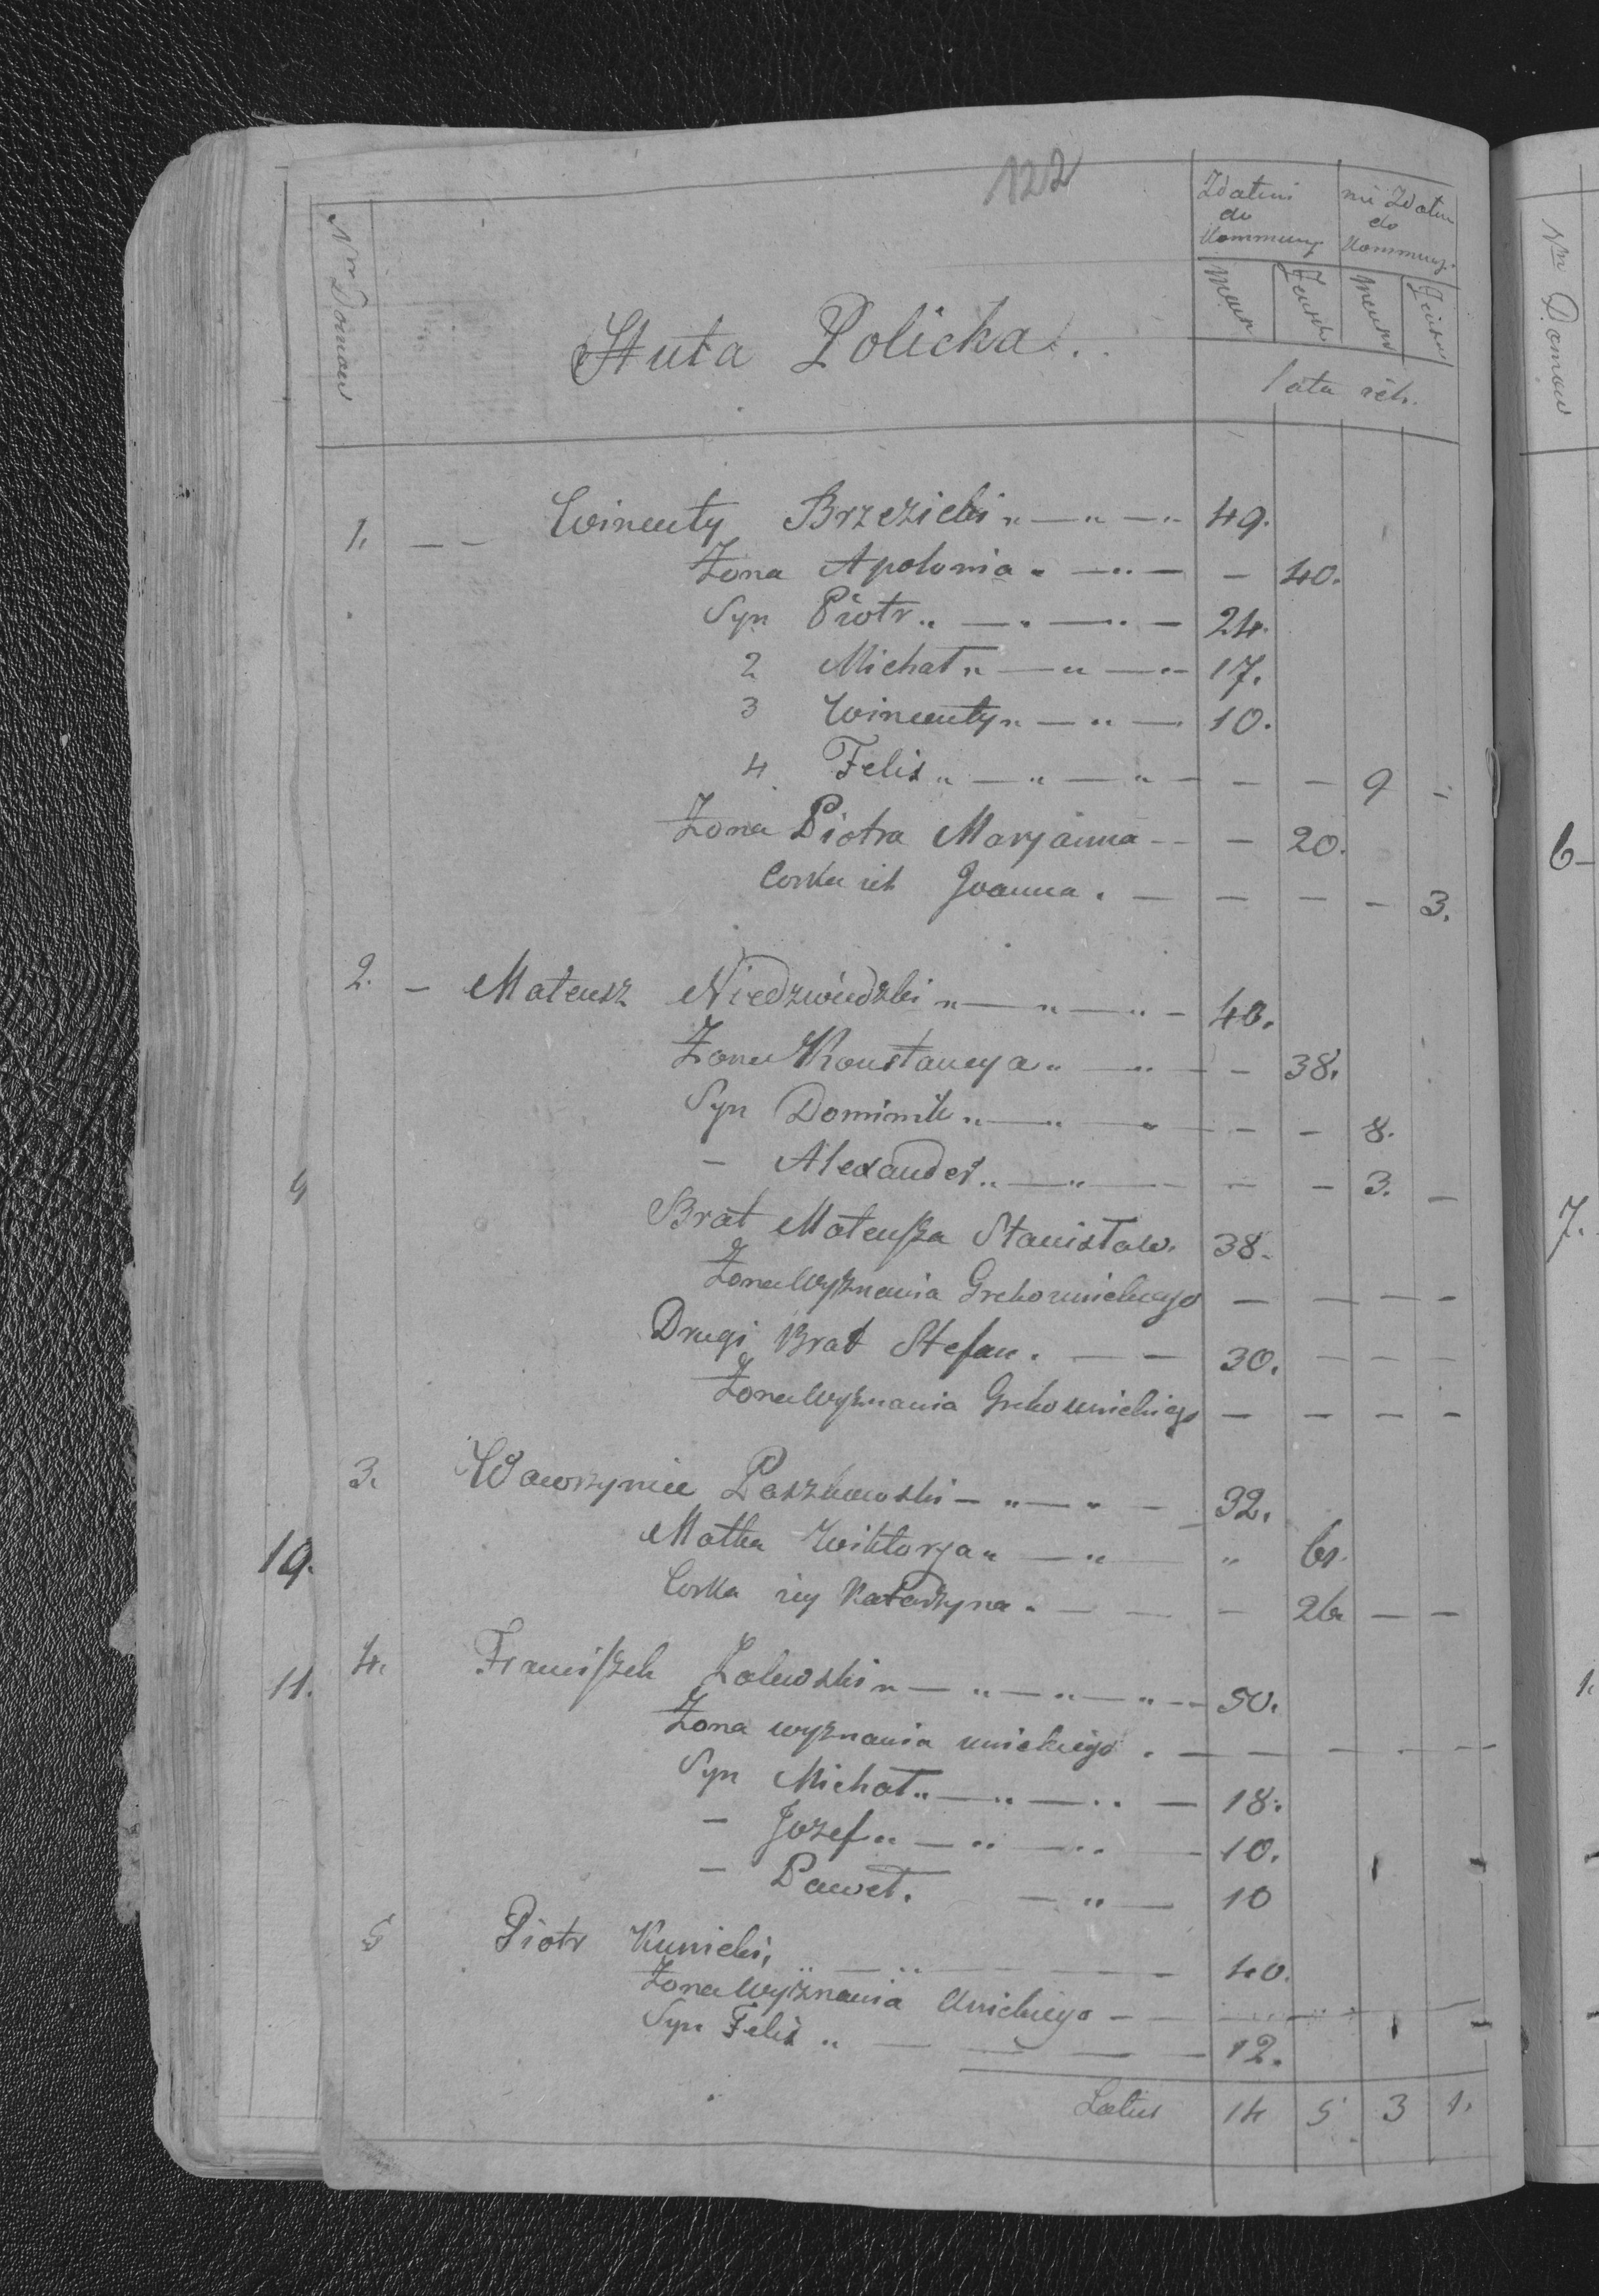 122
Nr Domow
Zdatni do Kommuny
nie Zdatn do Kommuny
Męsk
Żeńsk
Męsk
Żeńsk
Huta Policka.
lata ich.
1. — — Wincenty Brzezicki „ — „ — „ 49.
Żona Apolonia „ — „ — — 40.
Syn Piotr „ — „ — „ — 24.
2 Michał „ — „ — „ — 17.
3 Wincenty „ — „ — 10.
4 Felix „ — „ — „ — — — 9 -
Żona Piotra Maryanna - - — 20.
Corka ich Joanna . — — — — 3.
2. — Mateusz Niedzwiedzki „ — „ — „ — 40.
Żona Konstancya „ — „ — — 38.
Syn Dominik „ — „ — „ — — 8.
— Alexander „ — „ — — — 3. —
Brat Mateusza Stanisław. 38.
Żona Wyznania Grekounickiego — — — —
Drugi Brat Stefan . — — 30. — — —
Żona Wyznania Grekounickiego — — — —
3. Wawrzyniec Paszkowski — „ — „ — 32.
Matka Wiktorya „ — „ — „ 61.
Corka iey Katarzyna . — — — 26 — —
4. Franciszek Zalewski „ — „ — „ — „ — 50.
Żona wyznania unickiego . — — — — —
Syn Michał „ — „ — „ — 18.
— Jozef „ — „ — „ — 10.
— Paweł. — „ — 10
5 Piotr Kunicki, „ — „ — — — 40.
Żona Wyznania Unickiego — —
Syn Felix „ — — — — 12.
Latus 14 5 3 1.
9
10.
11.
Nr Domow
6 —
7.
1.